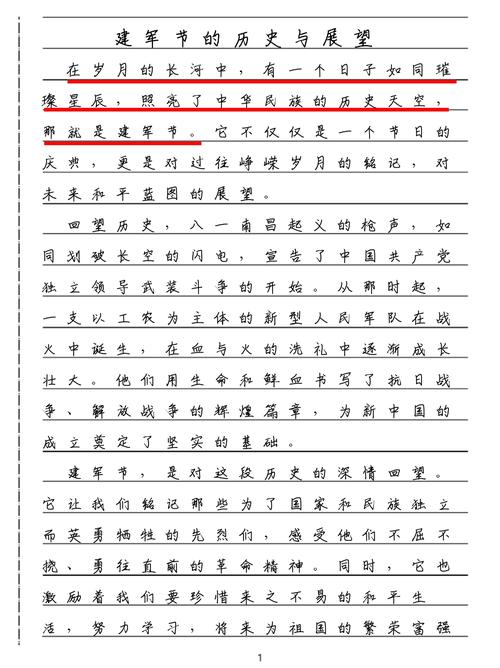 建军节的历史与展望
在岁月的长河中，有一个日子如同璀
璨星辰，照亮了中华民族的历史天空，
那就是建军节。它不仅仅是一个节日的
庆典，更是对过往峥嵘岁月的铭记，对
未来和平蓝图的展望。
回望历史，八一南昌起义的枪声，如
同划破长空的闪电，宣告了中国共产党
独立领导武装斗争的开始。从那时起，
一支以工农为主体的新型人民军队在战
火中诞生，在血与火的洗礼中逐渐成长
壮大。他们用生命和鲜血书写了抗日战
争、解放战争的辉煌篇章，为新中国的
成立奠定了坚实的基础。
建军节，是对这段历史的深情回望。
它让我们铭记那些为了国家和民族独立
而英勇牺牲的先烈们，感受他们不屈不
挠、勇往直前的革命精神。同时，它也
激励着我们要珍惜来之不易的和平生
活，努力学习，将来为祖国的繁荣富强
1